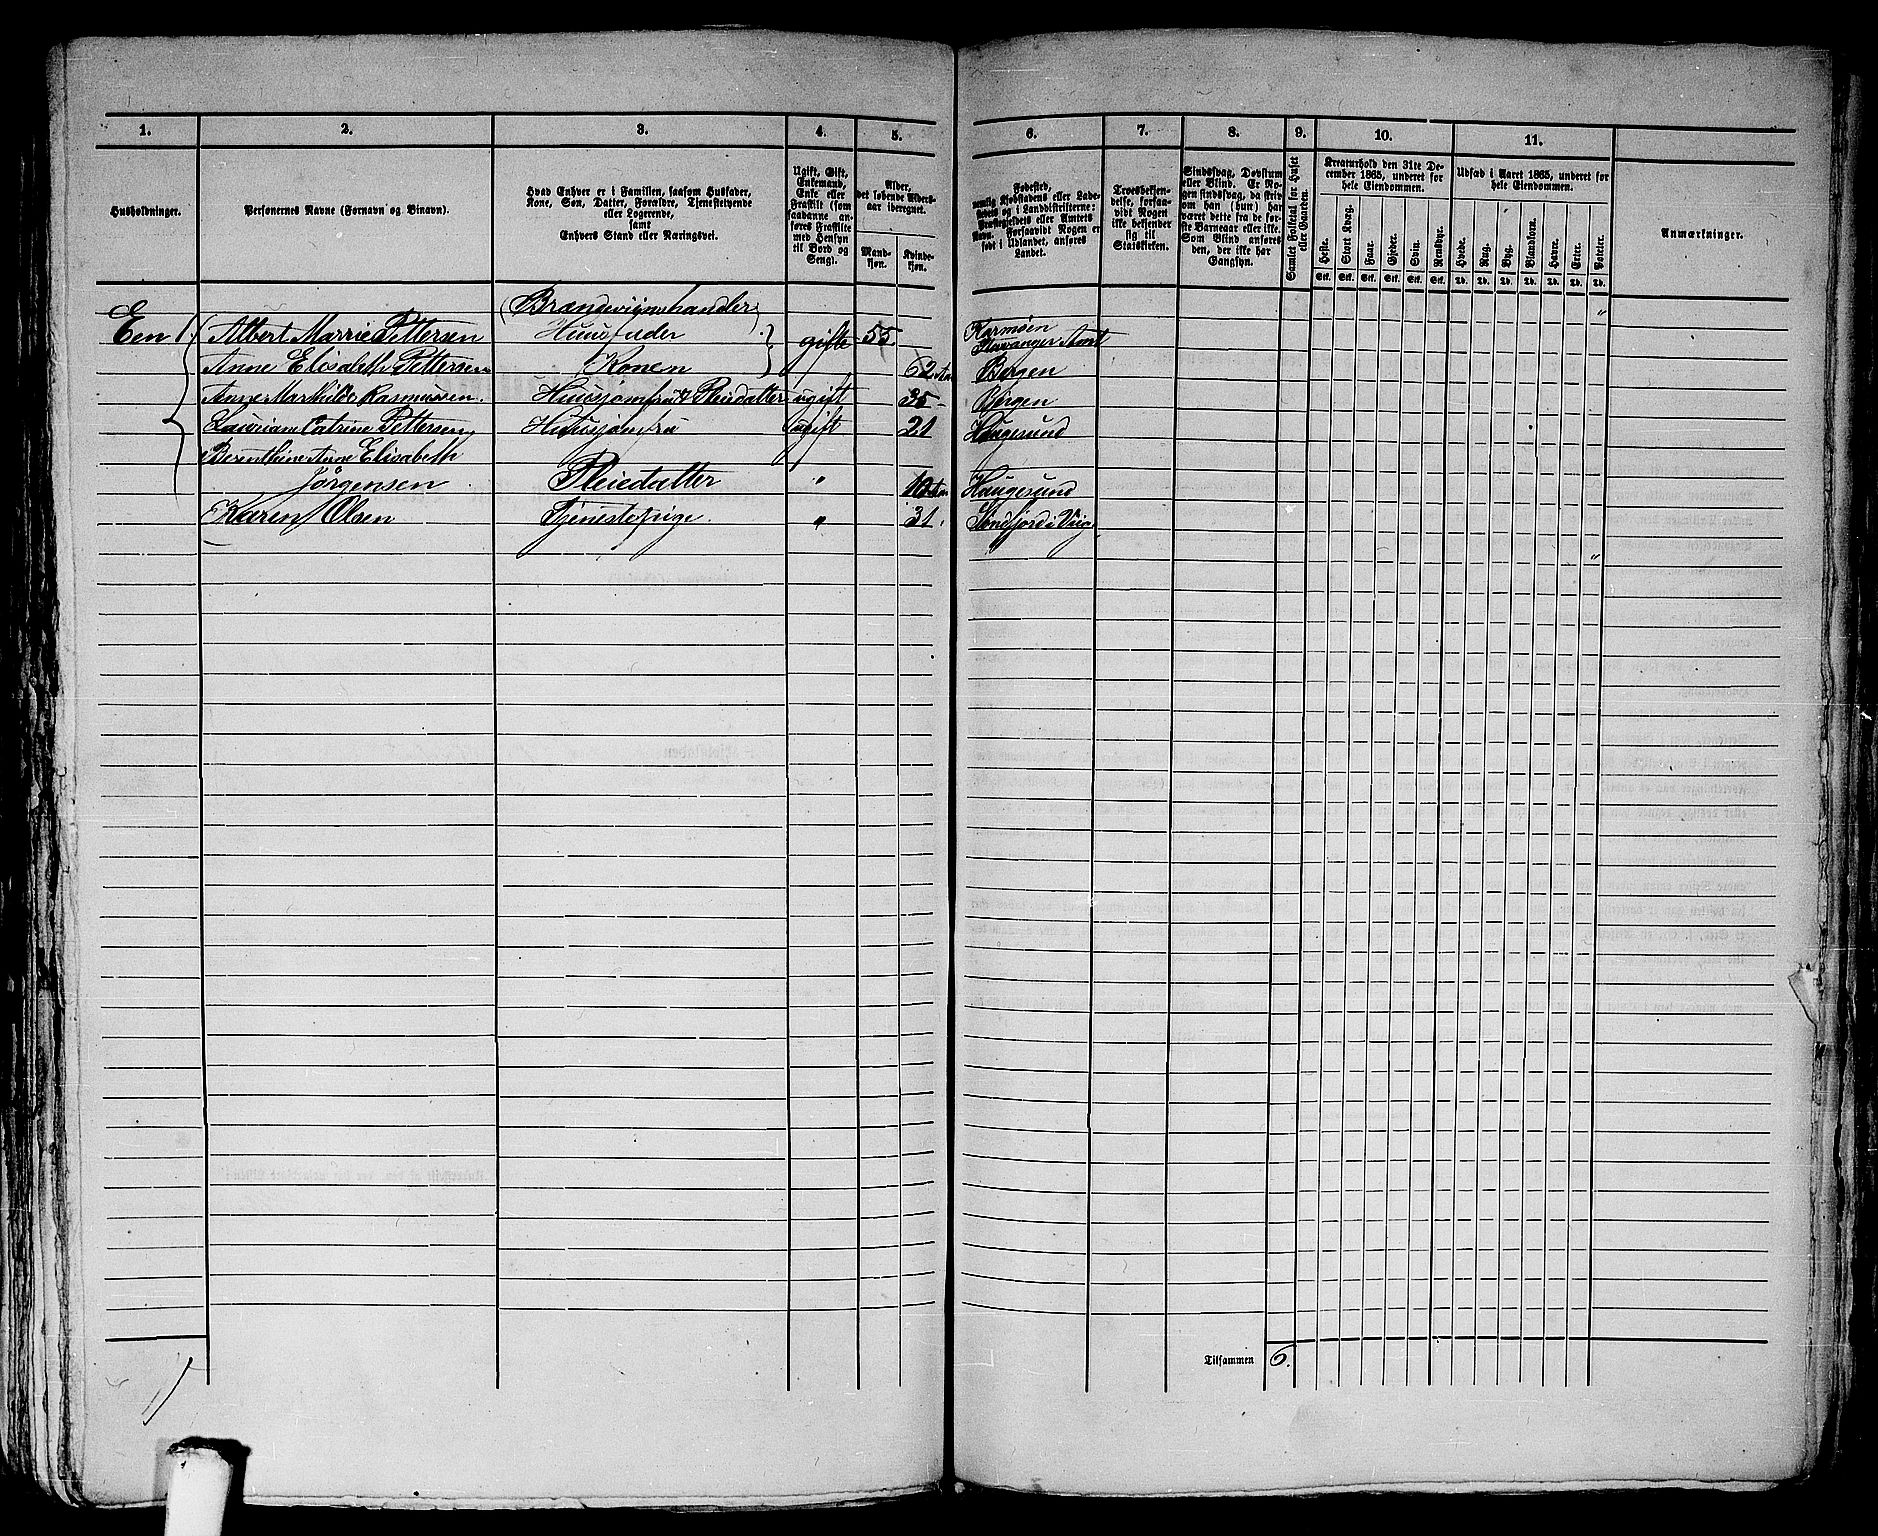 1. 2. 3. 4. 5. 6. 7. 8. 9. 10. 11.
Husholdninger.
Personernes Navne (Fornavn og Binavn).
Hvad Enhver er i Familien, saasom Husfader,
Kone, Søn, Datter, Forældre, Tjenestetyende
eller Logerende,
samt
Enhvers Stand eller Næringsvei.
Ugift, Gift,
Enkemand,
Enke eller
Fraskilt (som
saadanne an-
føres Fraskilte
med Hensyn
til Bord og
Seng).
Alder,
det løbende Alders-
aar iberegnet.
Mand-
kjøn.
Kvinde-
kjøn.
Fødested,
nemlig Kjøbstadens eller Lade-
stedets og i Landdistrikterne:
Præstegjeldets eller Amtets
Navn. Forsaavidt Nogen er
født i Udlandet, anføres
Landet.
Troesbekjen-
delse, forsaa-
vidt Nogen
ikke bekjender
sig til
Statskirken.
Sindssvag, Døvstum
eller Blind. Er No-
gen sindssvag, da skriv
om han (hun) har
været dette fra de før-
ste Barneaar eller ikke.
Som Blind anføres
den, der ikke har
Gangsyn.
Samlet Folketal for Huset
eller Gaarden.
Kreaturhold den 31te De-
cember 1865, underet for
hele Eiendommen.
Heste. Stort Kvæg. Faar. Gjeder. Svin. Rensdyr.
Stk. Stk. Stk. Stk. Stk. Stk.
Udsæd i Aaret 1865, underet for
hele Eiendommen.
Hvede. Rug. Byg. Blandkorn. Havre. Erter. Poteter.
Td. Td. Td. Td. Td. Td. Td.
Anmærkninger.
(Brændeviinshandler)
Een 1. Albert Marrie Pettersen Huusfader gifte 55. Karmøen
Stavanger Amt "
Anne Elisabeth Pettersen Konen 62 Bergen
Anne Marthilde Rasmussen. Huusjomfru & Pleiedatter ugift 35 Bergen
Lauriane Catrine Pettersen Huusjomfru ugift 21 Haugesund
Berenthine Anne Elisabeth
Jørgensen Pleiedatter " 10 Haugesund
Karen Olsen Tjenestepige. " 31. Søndfjord i Viig
"
Tilsammen 6.